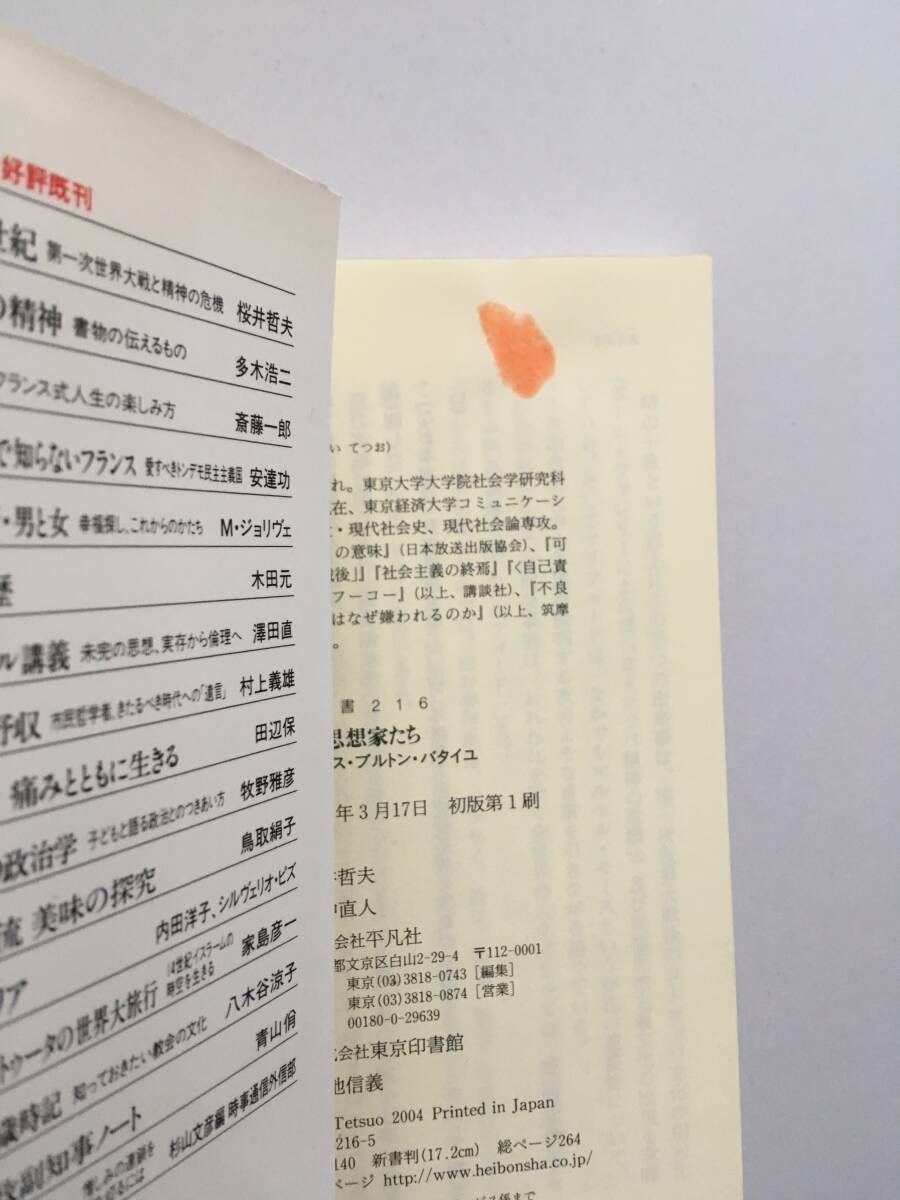 好評既刊
世紀 第一次世界大戦と精神の危機 桜井哲夫
の精神 書物の伝えるもの 多木浩二
フランス式人生の楽しみ方 斎藤一郎
で知らないフランス 愛すべきトンデモ民主主義国 安達功
・男と女 幸福探し、これからのかたち M・ジョリヴェ
木田元
ル講義 未完の思想、実存から倫理へ 澤田直
野収 市民哲学者、きたるべき時代への「遺言」 村上義雄
痛みとともに生きる 田辺保
の政治学 子どもと語る政治とのつきあい方 牧野雅彦
流 美味の探究 鳥取絹子
リア 内田洋子、シルヴェリオ・ピズ
トゥータの世界大旅行 14世紀イスラームの時空を生きる 家島彦一
歳時記 知っておきたい教会の文化 八木谷涼子
政副知事ノート 青山佾
憎しみの連鎖を
切るには 杉山文彦編 時事通信外信部
い てつお）
れ。東京大学大学院社会学研究科
在、東京経済大学コミュニケーシ
・現代社会史、現代社会論専攻。
の意味』（日本放送出版協会）、『可
戦後」』『社会主義の終焉』『〈自己責
フーコー』（以上、講談社）、『不良
はなぜ嫌われるのか』（以上、筑摩
。
書216
思想家たち
ス・ブルトン・バタイユ
年3月17日 初版第1刷
井哲夫
直人
会社平凡社
都文京区白山2-29-4 〒112-0001
東京(03)3818-0743［編集］
東京(03)3818-0874［営業］
00180-0-29639
式会社東京印書館
池信義
Tetsuo 2004 Printed in Japan
216-5
140 新書判(17.2cm) 総ページ264
ページ http://www.heibonsha.co.jp/
ビス係まで